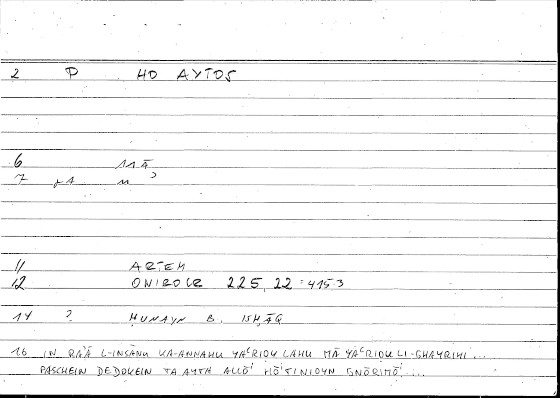 2 P HO AYTOS
6 11Ā
7 +1 11 ʾ
11 ARTEM
12 ONIROCR 225, 22 = 415.3
14 ? ḤUNAYN B. ISḤĀQ
16 IN RAʾĀ L-INSĀNU KA-ANNAHU YAʿRIḌU LAHU MĀ YAʿRIḌU LI-GHAYRIHI ...
PASCHEIN DE DOKEIN TA AYTA ALLŌʾ HŌʾTINIOYN GNŌRIMŌʾ ...